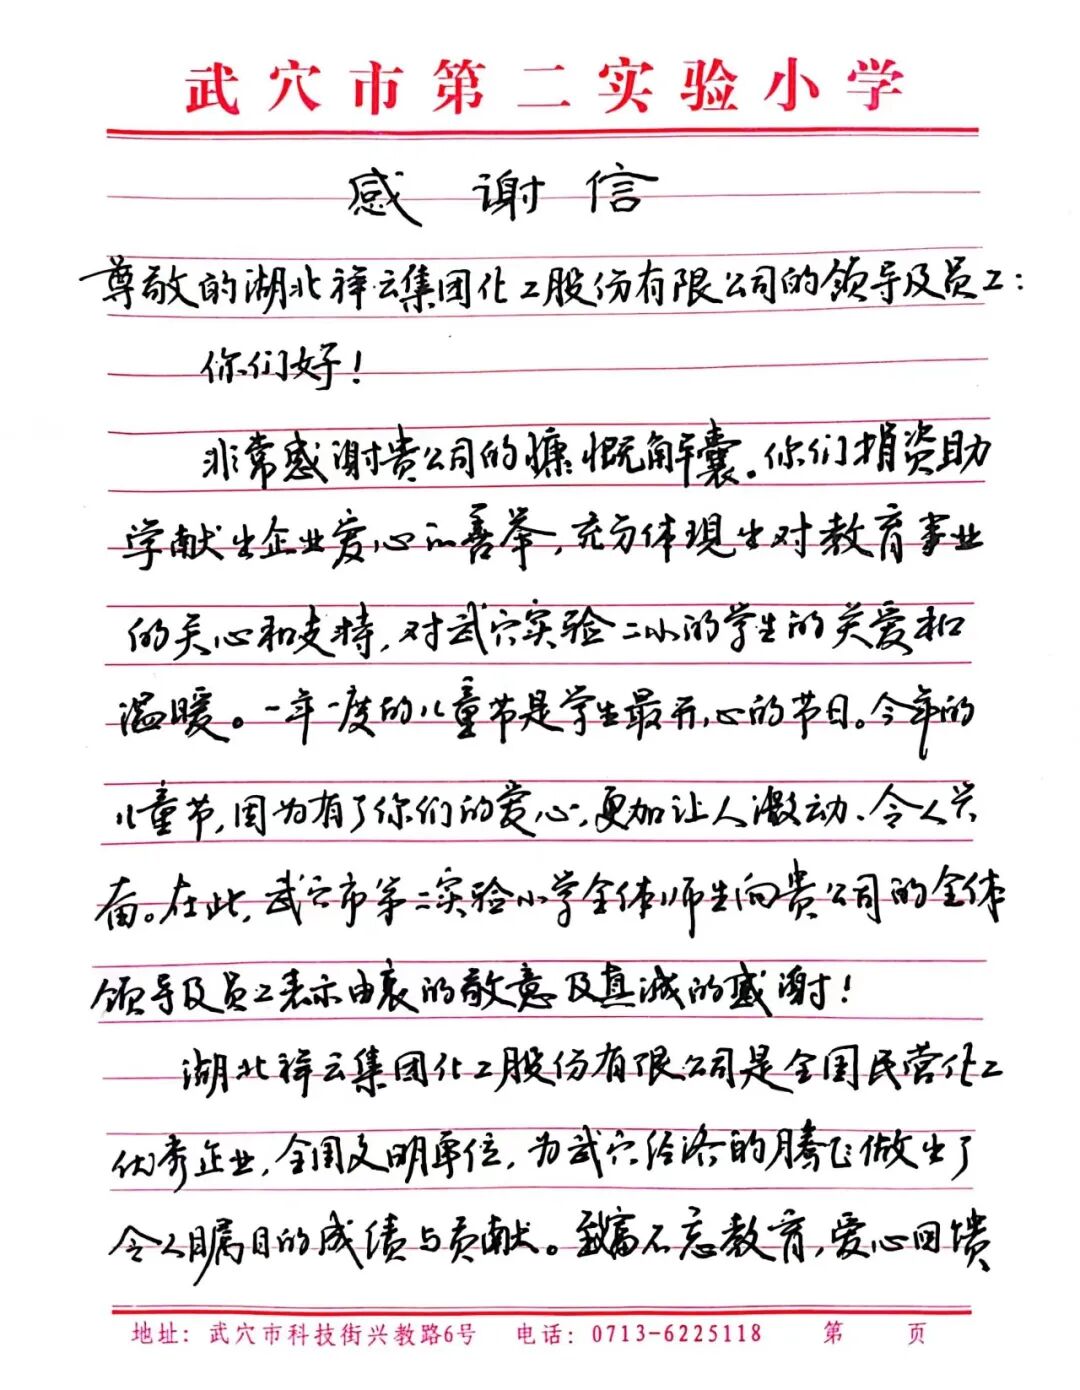 武穴市第二实验小学
感谢信
尊敬的湖北祥云集团化工股份有限公司的领导及员工：
你们好！
非常感谢贵公司的慷慨解囊。你们捐资助
学献出企业爱心的善举，充分体现出对教育事业
的关心和支持，对武穴实验二小的学生的关爱和
温暖。一年一度的儿童节是学生最开心的节日。今年的
儿童节，因为有了你们的爱心，更加让人激动、令人兴
奋。在此，武穴市第二实验小学全体师生向贵公司的全体
领导及员工表示由衷的敬意及真诚的感谢！
湖北祥云集团化工股份有限公司是全国民营化工
优秀企业，全国文明单位，为武穴经济的腾飞做出了
令人瞩目的成绩与贡献。致富不忘教育，爱心回馈
地址：武穴市科技街兴教路6号 电话：0713-6225118 第 页